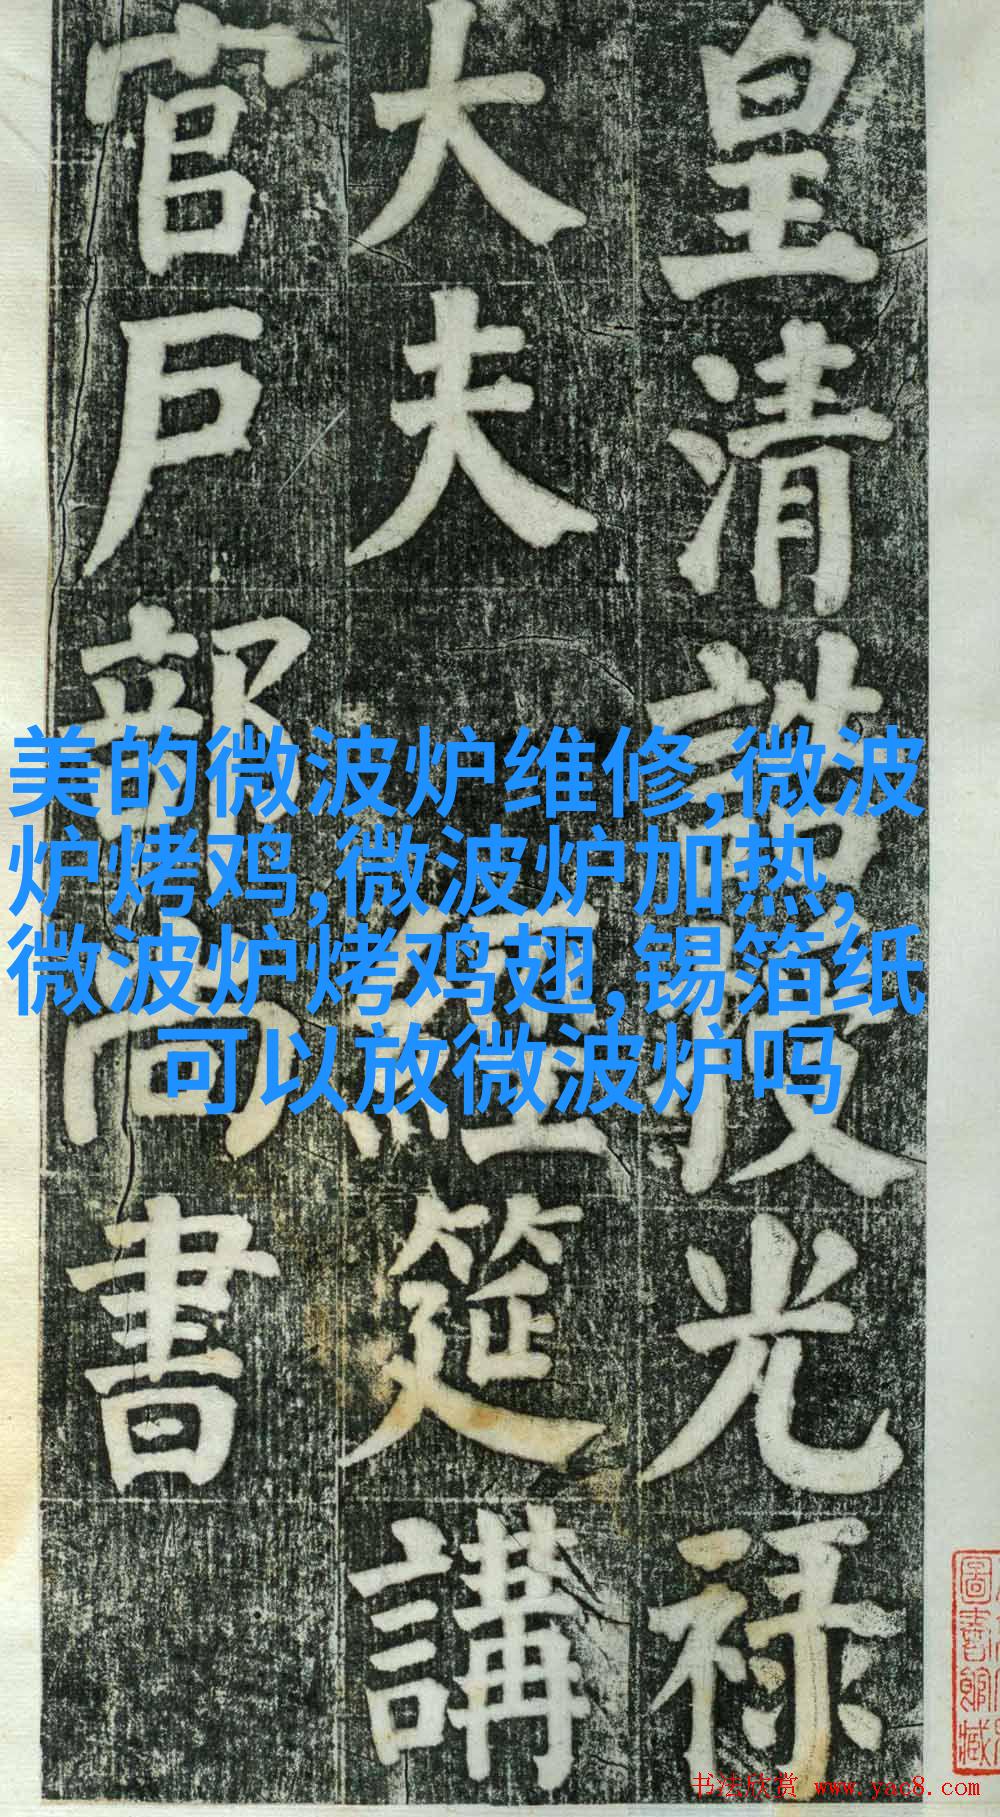 皇清誥授光禄
大夫 經筵講
官戶部尚書
美的微波炉维修,微波
炉烤鸡,微波炉加热,
微波炉烤鸡翅,锡箔纸
可以放微波炉吗
圖書館藏
书法欣赏 www.yac8.com